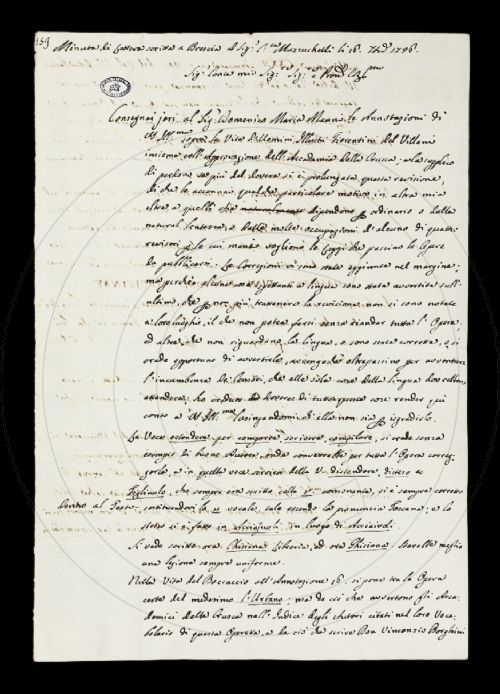 159
Minuta di Lettera scritta a Brescia al Sig.r C.te Mazzuchelli li 16. 7bre 1746.
Sig.r Conte mio Sig.re Sig.re e
Consegnai jeri al Sig.r Domenico Maria Manni le Annotazioni di
V.S. Ill.ma sopra le Vite dell'Uomini Illustri Fiorentini del Villani
insieme coll'approvazione dell'Accademia della Crusca: e la supplico
di perdono se più del dovere si è prolungata questa revisione,
di che le accenna qualche particolare motivo in altra mia
oltre a quelli che naturalmente dipendono per ordinario o dalla
natural lentezza, o dalle molte occupazioni di alcuno di quattro
revisori per le cui mani vogliono le Leggi che passino le Opere
da pubblicarsi. Le Correzioni vi sono state aggiunte nel margine;
ma perchè alcune cose spettanti a lingua sono state avvertite sull'
ultimo, che per non più trattenere la revisione non si sono notate
a loro luoghi, il che non potea farsi senza riandar tutta l'Opera
ed altre, che non riguardano la lingua, e sono state corrette, o si
crede opportuno di avvertirle, avvengachè oltrepassino per avventura
l'incumbenza de' Censori, che alle sole cose della lingua dee
attendere; ho creduto di dovere di tutte queste cose render più
conto a V.S. Ill.ma lusingandomi ch'ella non sia per isgradirlo.
La Voce estendere per comporre, scrivere, compilare, si crede senza
esempio di buono Autore, onde converrebbe per tutta l'Opera correg-
gerla, e in quella vece servirsi della V. distendere, disteso &c
Figliuolo, che sempre era scritto colla v. consonante, si è sempre corretto
dentro al Testo sostituendovi la u vocale, tale essendo la pronuncia Toscana; e lo
stesso si è fatto in Acciajuoli, in luogo di Acciaivoli.
Si vede scritto ora Chisiana Libreria, ed ora Ghisiana. Starebbe meglio
una lezione sempre uniforme.
Nella Vita del Boccaccio all'Annotazione 16. si pone tra le Opere
certe del medesimo l'Urbano; ma da ciò che avvertono gli Acca-
demici della Crusca nell'Indice degli Autori citati nel loro Voca-
bolario di questa Operetta, e da ciò che scrive Don Vincenzio Borghini